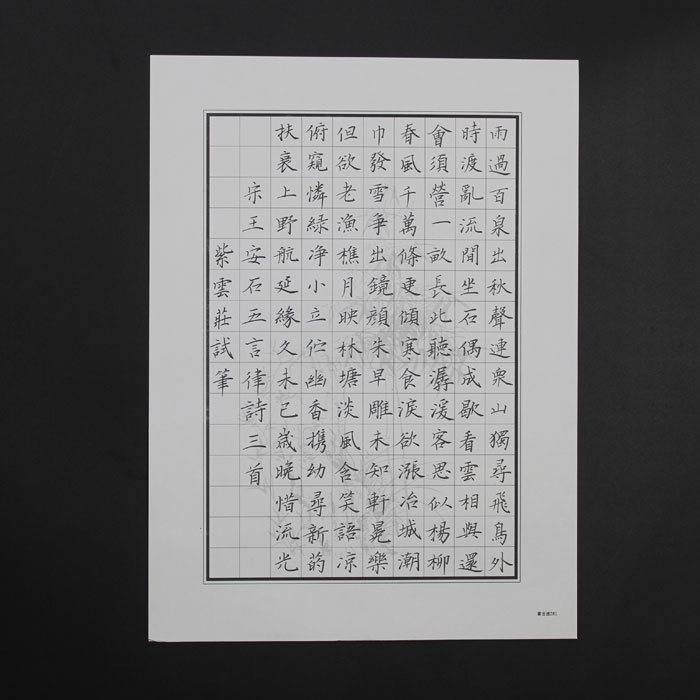 雨過百泉出秋聲連衆山獨尋飛鳥外
時渡亂流間坐石偶成歇看雲相與還
會須營一畝長此聽潺湲客思似楊柳
春風千萬條更傾寒食淚欲漲冶城潮
巾發雪爭出鏡顏朱早雕未知軒冕樂
但欲老漁樵月映林塘淡風含笑語凉
俯窺憐緑净小立伫幽香携幼尋新菂
扶衰上野航延緣久未已歲晚惜流光
宋王安石五言律詩三首
紫雲莊試筆